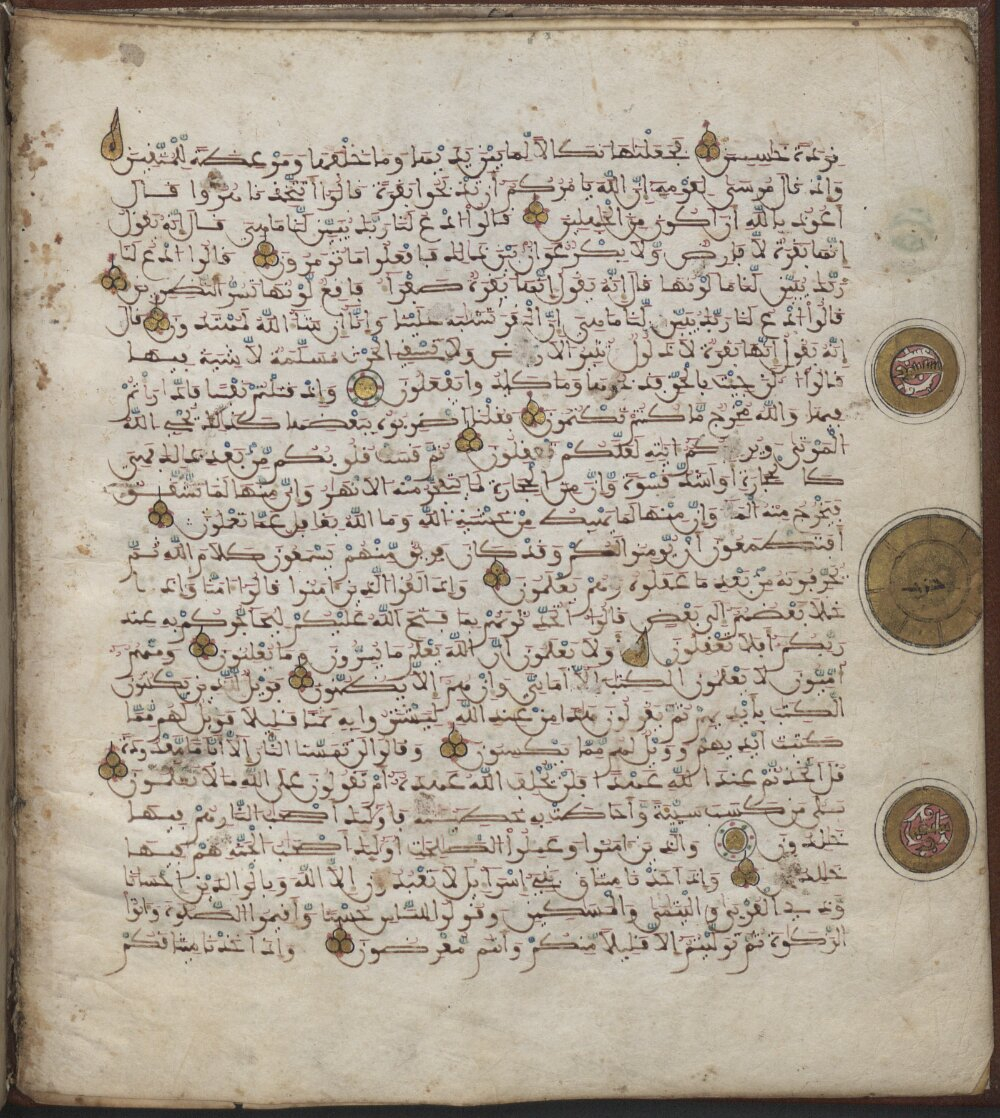 قردة خسين فجعلنها نكالا لما بين يديها وما خلفها وموعظة للمتقين
وإذ قال موسى لقومه إن الله يامركم أن تذبحوا بقرة قالوا أتتخذنا هزوا قال
أعوذ بالله أن أكون من الجهلين قالوا ادع لنا ربك يبين لنا ما هي قال إنه يقول
إنها بقرة لا فارض ولا بكر عوان بين ذالك فافعلوا ما تومرون قالوا ادع لنا
ربك يبين لنا ما لونها قال إنه يقول إنها بقرة صفرا فاقع لونها تسر النظرين
قالوا ادع لنا ربك يبين لنا ما هي إن البقر تشبه علينا وإنا إن شا الله لمهتدون قال
إنه يقول إنها بقرة لا ذلول تثير الارض ولا تسقي الحرث مسلمة لا شية فيها
قالوا الن جيت بالحق فذبحوها وما كادوا يفعلون وإذ قتلتم نفسا فادارأتم
فيها والله مخرج ما كنتم تكتمون فقلنا اضربوه ببعضها كذالك يحي الله
الموتى ويريكم ءايته لعلكم تعقلون ثم قست قلوبكم من بعد ذالك فهي
كالحجارة أو أشد قسوة وإن من الحجارة لما يتفجر منه الانهر وإن منها لما يشقق
فيخرج منه الما وإن منها لما يهبط من خشية الله وما الله بغافل عما تعملون
أفتطمعون أن يومنوا لكم وقد كان فريق منهم يسمعون كلام الله ثم
يحرفونه من بعد ما عقلوه وهم يعلمون وإذا لقوا الذين ءامنوا قالوا ءامنا وإذا
خلا بعضهم إلى بعض قالوا أتحدثونهم بما فتح الله عليكم ليحاجوكم به عند
ربكم أفلا تعقلون أولا يعلمون أن الله يعلم ما يسرون وما يعلنون ومنهم
أميون لا يعلمون الكتب إلا أماني وإن هم إلا يظنون فويل للذين يكتبون
الكتب بأيديهم ثم يقولون هذا من عند الله ليشتروا به ثمنا قليلا فويل لهم مما
كتبت أيديهم وويل لهم مما يكسبون وقالوا لن تمسنا النار إلا أياما معدودة
قل أتخذتم عند الله عهدا فلن يخلف الله عهده أم تقولون على الله ما لا تعلمون
بلى من كسب سيئة وأحاطت به خطيـته فأولئك أصحب النار هم فيها
خلدون والذين ءامنوا وعملوا الصلحت أولئك أصحب الجنة هم فيها
خلدون وإذ أخذنا ميثق بني إسرايل لا تعبدون إلا الله وبالوالدين إحسانا
وذي القربى واليتمى والمسكين وقولوا للناس حسنا وأقيموا الصلوة وءاتوا
الزكوة ثم توليتم إلا قليلا منكم وأنتم معرضون وإذ أخذنا ميثاقكم
حزب